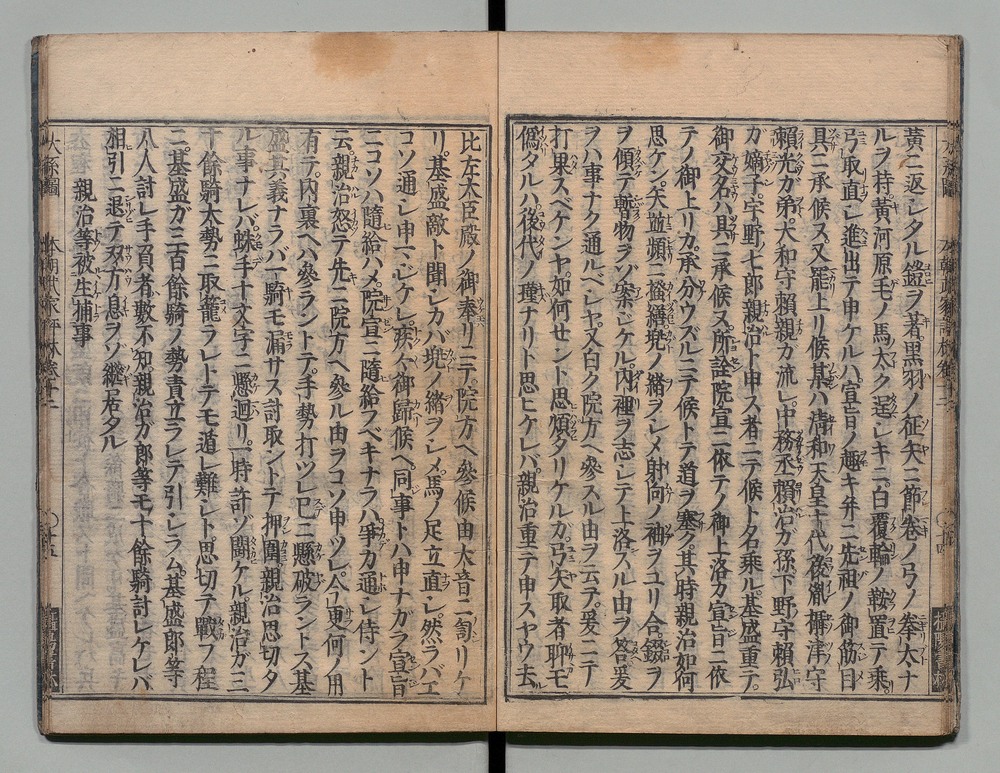 黃ニ返シタル鎧ヲ著黒羽ノ征矢ニ節巻ノ弓ノ拳太ナ
ルヲ持黃河原毛ノ馬太ク逞シキニ白覆輪ノ鞍置テ乘
弓取直シ進出テ申ケルハ宣旨ノ趣キ弁ニ先祖ノ御筋目
具ニ承候ヌ又罷上リ候某ハ清和天皇十代後胤攝津守
賴光ガ弟大和守賴親カ流レ中務丞賴治ガ孫下野守賴弘
ガ嫡子宇野七郎親治ト申ス者ニテ候ト名乘ル基盛重テ
御交名ハ具ニ承候ヌ所詮院宣ニ依テノ御上洛カ宣旨ニ依
テノ御上リカ承分ウズルニテ候トテ道ヲ塞ク其時親治如何
思ケン矢並頻ニ搔繕兜ノ緒ヲシメ射向ノ袖ヲユリ合錣ヲ
ヲ傾テ暫物ヲゾ案ジケル内裡ヲ志シテ上洛スル由ヲ答爰
ヲハ事ナク通ルベシヤ又白ク院方ヘ參スル由ヲ云テ爰ニテ
打果スベケンヤ如何せント思煩タリケルカ弓矢取者聊モ
僞タルハ後代ノ瑾ナリト思ヒケレバ親治重テ申スヤウ去
比左大臣殿ノ御奉リニテ院方ヘ參候由大音ニ訇リケ
リ基盛敵ト聞シカバ兜ノ緒ヲシメ馬ノ足立直シ然ラバエ
コソ通シ申マジケレ疾々御歸候ヘ同事トハ申ナガラ宣旨
ニコソハ隨給ハメ院宣ニ隨給フベキナラハ爭カ通シ侍ント
云親治怒テ先ニ院方ヘ參ル由ヲコソ申ツレ今更何ノ用
有テ内裏ヘハ參ラントテ手勢打ツレ已ニ懸破ラントス基
盛其義ナラバ一騎モ漏サス討取ントテ押圍親治思切タ
ル事ナレバ蛛手十文字ニ懸迴リ一時許ゾ闘ケル親治カ三
十餘騎大勢ニ取籠ラレトテモ遁レ難シト思切テ戰フ程
ニ基盛ガ二百餘騎ノ勢責立ラレテ引シラム基盛郎等
八人討レ手負者數不知親治ガ郎等モ十餘騎討レケレバ
相引ニ退テ双方息ヲソ繼居タル
親治等被生捕事